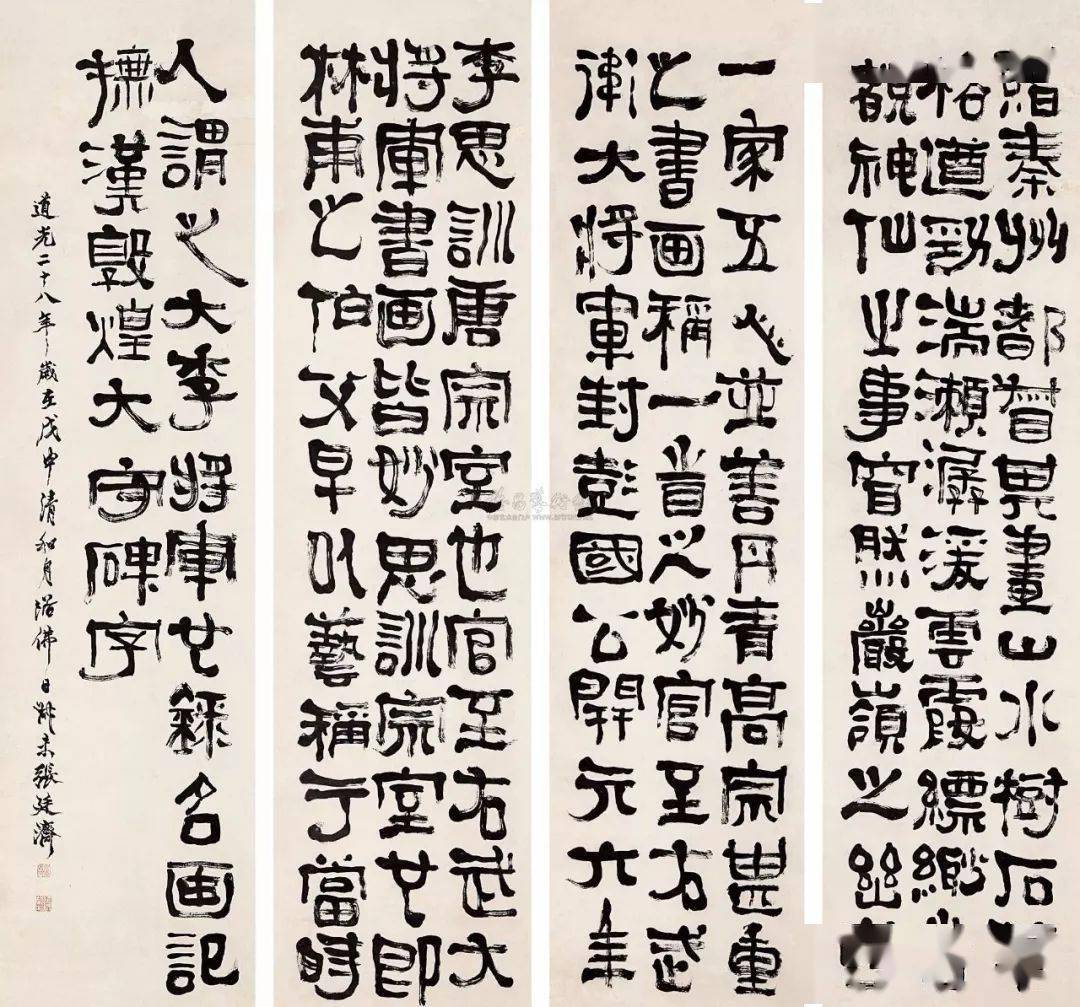 秦州都督其畫山水樹石
格遒勁湍瀨潺湲雲霞縹緲
覩神仙之事窅然巖嶺之幽
一家五人並善丹青高宗甚重
之書画稱一旹之妙官至右武
衛大將軍封彭國公開元六年
李思訓唐宗室也官至右武大
將軍書画皆妙思訓宗室也即
林甫之伯父早以藝稱于當時
人謂之大李將軍也錄名画記
撫漢敦煌大守碑字
道光二十八年歲在戊申清和月浴佛日叔未張廷濟